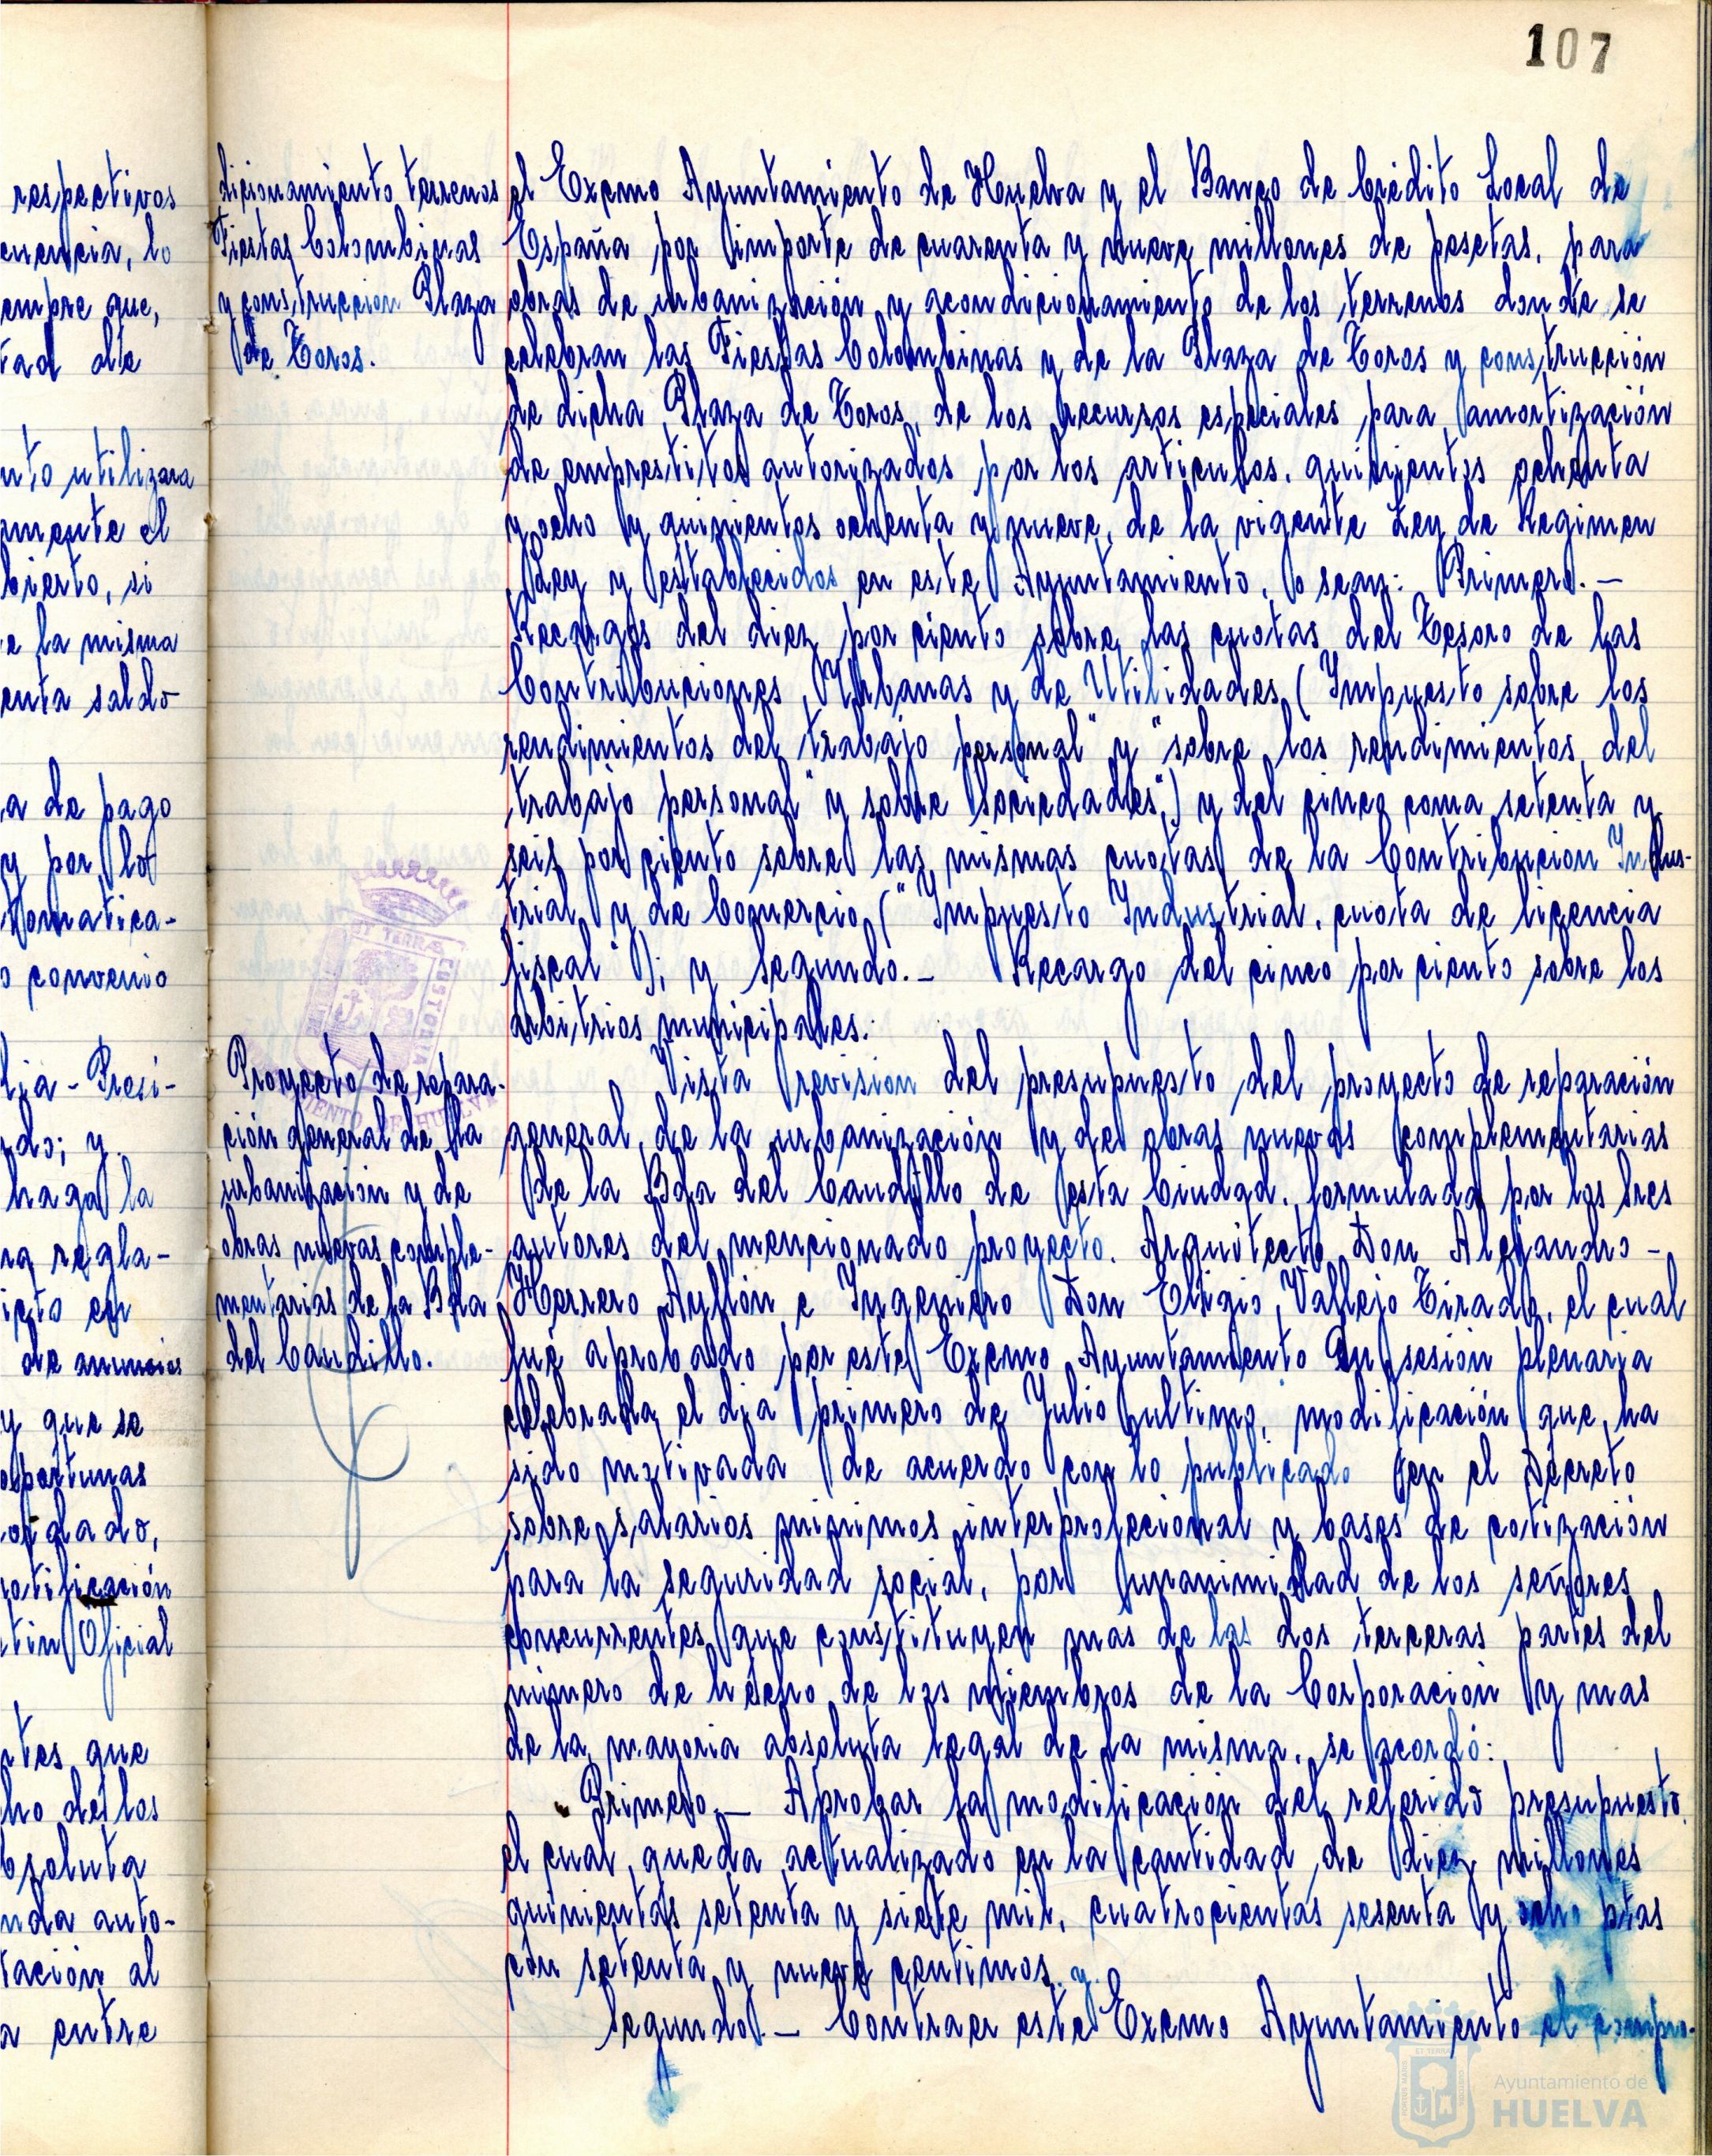 107
respectivos
cuencia, lo
empre que,
tad de
nto utilizara
mente el
bierto, si
e la misma
enta saldo
a de pago
y por lo
tomatica-
o convenio
lia - Presi-
rdo; y
haga la
ra regla-
icto en
de anuncios
y que se
oportunas
ordado,
otificación
tin Oficial
ntes que
ho de los
bsoluta
nda auto-
tación al
a entre
dicionamiento terrenos
Fiestas Colombinas
y construccion Plaza
de Toros.
el Excmo Ayuntamiento de Huelva y el Banco de Crédito Local de
España por importe de cuarenta y nueve millones de pesetas, para
obras de urbanización y acondicionamiento de los terrenos donde se
celebran las Fiestas Colombinas y de la Plaza de Toros y construcción
de dicha Plaza de Toros, de los recursos especiales para amortización
de emprestitos autorizados por los articulos, quinientos ochenta
y ocho y quinientos ochenta y nueve, de la vigente Ley de Regimen
Ley y establecidos en este Ayuntamiento, o sean: Primero.—
Recargos del diez por ciento sobre las cuotas del Tesoro de las
Contribuciones Urbanas y de Utilidades (Impuesto sobre los
rendimientos del trabajo personal" y "sobre los rendimientos del
trabajo personal" y sobre Sociedades") y del cinco coma setenta y
seis por ciento sobre las mismas cuotas de la Contribucion Indus-
trial y de Comercio ("Impuesto Industrial, cuota de licencia
fiscal"); y Segundo.- Recargo del cinco por ciento sobre los
arbitrios municipales.
Proyecto de repara-
ción general de la
urbanización y de
obras nuevas comple-
mentarias de la Bda
del Caudillo.
Vista revision del presupuesto del proyecto de reparación
general de la urbanización y de obras nuevas complementarias
de la Bda del Caudillo de esta Ciudad, formulada por los Sres
autores del mencionado proyecto, Arquitecto Don Alejandro -
Herrero Ayllón e Ingeniero Don Eligio Vallejo Tirado, el cual
fué aprobado por este Excmo Ayuntamiento en sesión plenaria
celebrada el dia primero de Julio ultimo, modificación que ha
sido motivada de acuerdo con lo publicado en el Decreto
sobre salarios minimos interprofecional y bases de cotización
para la seguridad social, por unanimidad de los señores
concurrentes que constituyen mas de las dos terceras partes del
número de hecho de los miembros de la Corporación y mas
de la mayoria absoluta legal de la misma, se acordó:
Primero.— Aprobar la modificación del referido presupuesto
el cual queda actualizado en la cantidad de diez millones
quinientas setenta y siete mil, cuatrocientas sesenta y ocho ptas
con setenta y nueve centimos, y.
Segundo.— Contraer este Excmo Ayuntamiento el compro-
ET TERRAE CUSTODIA
AYUNTAMIENTO DE HUELVA
Ayuntamiento de
HUELVA